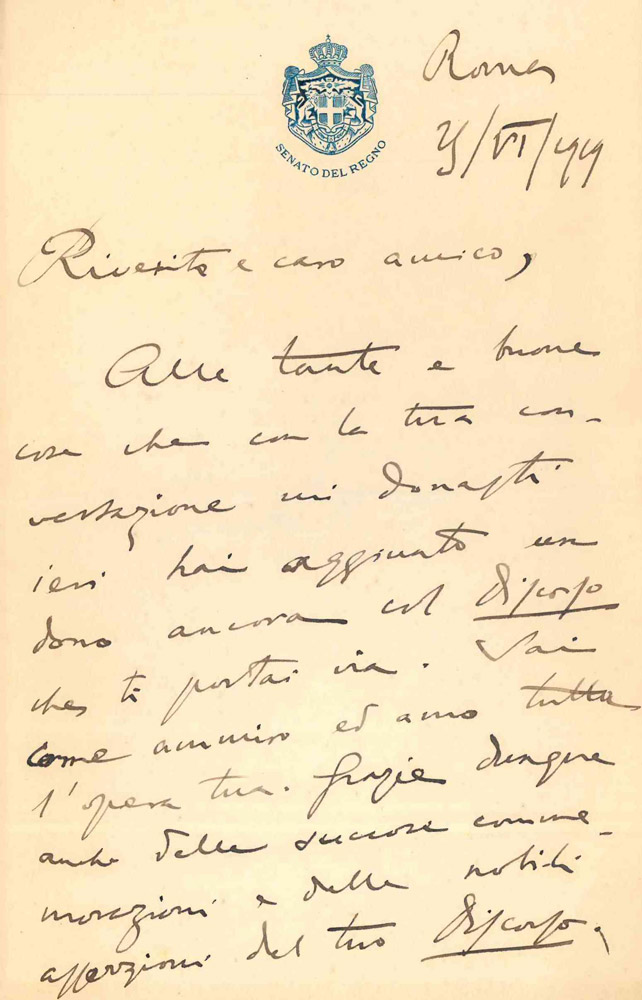 SENATO DEL REGNO
Roma
25/VI/1919
Riverito e caro amico,
Alle tante e buone
cose che con la tua con-
versazione mi donasti
ieri hai aggiunto un
dono ancora col Discorso
che ti portai via. Sai
come ammiro ed amo tutta
l'opera tua. Grazie dunque
anche delle succose comme-
morazioni e delle nobili
asserzioni del tuo Discorso.